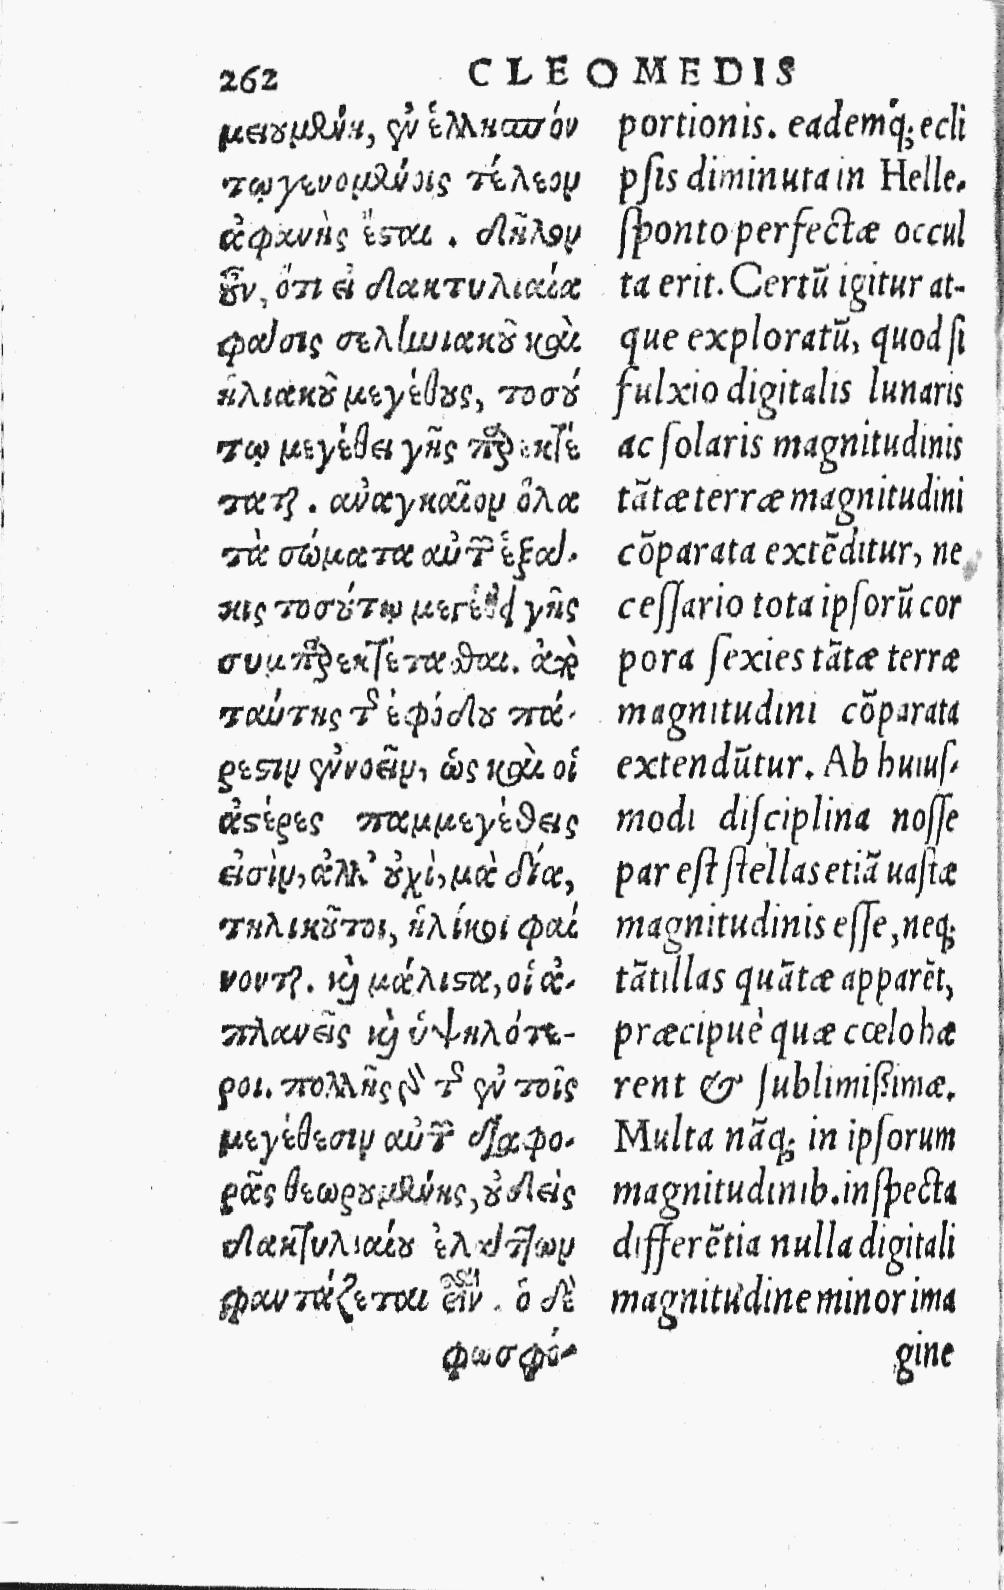 262 CLEOMEDIS
μειουμένη, ἐν ἑλλησπόν
τῳ γενομένοις τέλεον
ἀφανὴς ἔσται. δῆλον
οὖν, ὅτι εἰ δακτυλιαία
φαῦσις σεληνιακοῦ καὶ
ἡλιακοῦ μεγέθους, τοσού
τῳ μεγέθει γῆς παρεκτέ
ταται. ἀναγκαῖον ὅλα
τὰ σώματα αὐτῶν ἑξά-
κις τοσούτῳ μεγέθει γῆς
συμπαρεκτέταθαι. ἀπὸ
ταύτης τῆς ἐφόδου πά-
ρεστιν ἐννοεῖν, ὡς καὶ οἱ
ἀστέρες παμμεγέθεις
εἰσὶν, ἀλλ' οὐχὶ, μὰ δία,
τηλικοῦτοι, ἡλίκοι φαί
νονται. καὶ μάλιστα, οἱ ἀ-
πλανεῖς καὶ ὑψηλότε-
ροι. πολλῆς δὲ τῆς ἐν τοῖς
μεγέθεσιν αὐτῶν διαφο-
ρᾶς θεωρουμένης, οὐδεὶς
δακτυλιαίου ἐλάττων
φαντάζεται εἶναι. ὁ δὲ
φωσφό-
portionis. eademq́; ecli
psis diminuta in Helle.
sponto perfectæ occul
ta erit. Certũ igitur at-
que exploratũ, quod si
fulxio digitalis lunaris
ac solaris magnitudinis
tãtæ terræ magnitudini
cõparata extẽditur, ne
cessario tota ipsorũ cor
pora sexies tãtæ terræ
magnitudini cõparata
extendũtur. Ab huius-
modi disciplina nosse
par est stellas etiã uastæ
magnitudinis esse, neq;
tãtillas quãtæ apparẽt,
præcipuè quæ cœlo hæ
rent & sublimissimæ.
Multa nãq; in ipsorum
magnitudinib. inspecta
differẽtia nulla digitali
magnitudine minor ima
gine